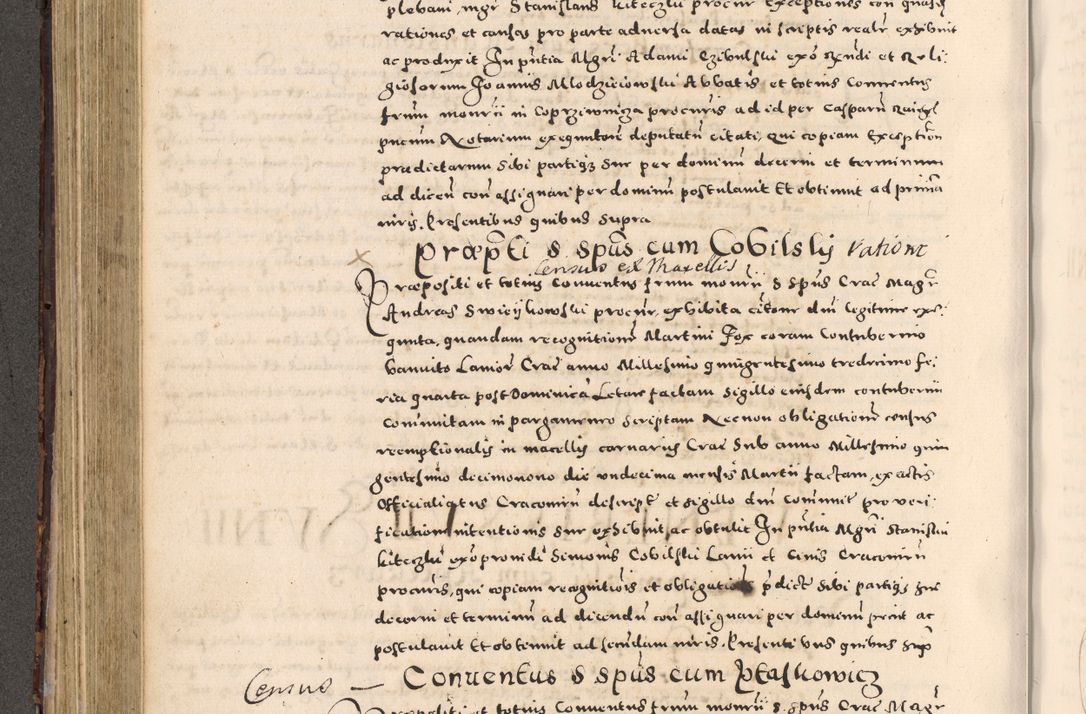 plebani, mgr Stanislaus Kiteczky procur exceptiones con quasdam
rationes et causas pro parte adversa datas in scriptis realr exhibuit
ac produxit In pntia Mgri Adami Czibulski exo Rndi et Reli:
giosorum Joannis Mlodzieiowski Abbatis et totius Conventus
frum monrii in Coprziwnicza procuris ad id per Casparum
pncum Notarium exequutorem deputatum citati, Qui copiam Exception
praedictarum sibi partiqz sue per dominum decerni et terminum
ad dicen con assignari per dominum postulavit Et obtinuit ad primam
iuris. Praesentibus quibus supra
Praepti S Spus cum Cobilsky ratione
census ex Macellis
Praepositi et totius Conventus frum monrii S Spus Crac Magr
Andreas Swieijkowski procur, exhibita citone dni legitime exe:
quuta, quandam recognitionem Martini Fox coram Contubernio
Banuito Lanior Crac anno Millesimo quingentesimo tredecimo fe:
ria quarta post Dominica Letare factam sigillo eiusdem contubernii
Communitam in pargameno scriptam Necnon obligationem census
reemptionalis in macellis carnariis Crac Sub anno Millesimo quin
gentesimo decimonono die undecima mensis Martii factam, ex actis
Officialiatus Cracouien descript et sigillo dni Communit pro veri:
ficatione intentionis sue exhibuit, ac obtulit In pntia Mgri Stanislai
Kiteczky exo providi Simonis Cobilski Lanii et Civis Cracouien
procuris, qui copiam recognitiois et obligationis pdict sibi partiqz sue
decerni et terminum ad dicendum con assignari per dominum petiit ac
postulavit Et obtinuit ad secundam iuris. Praesentibus quibus sup
Census — Conventus S Spus cum Ptaskowicz
Praepositi et totius Conventus frum monrii S. Spus Crac Magr